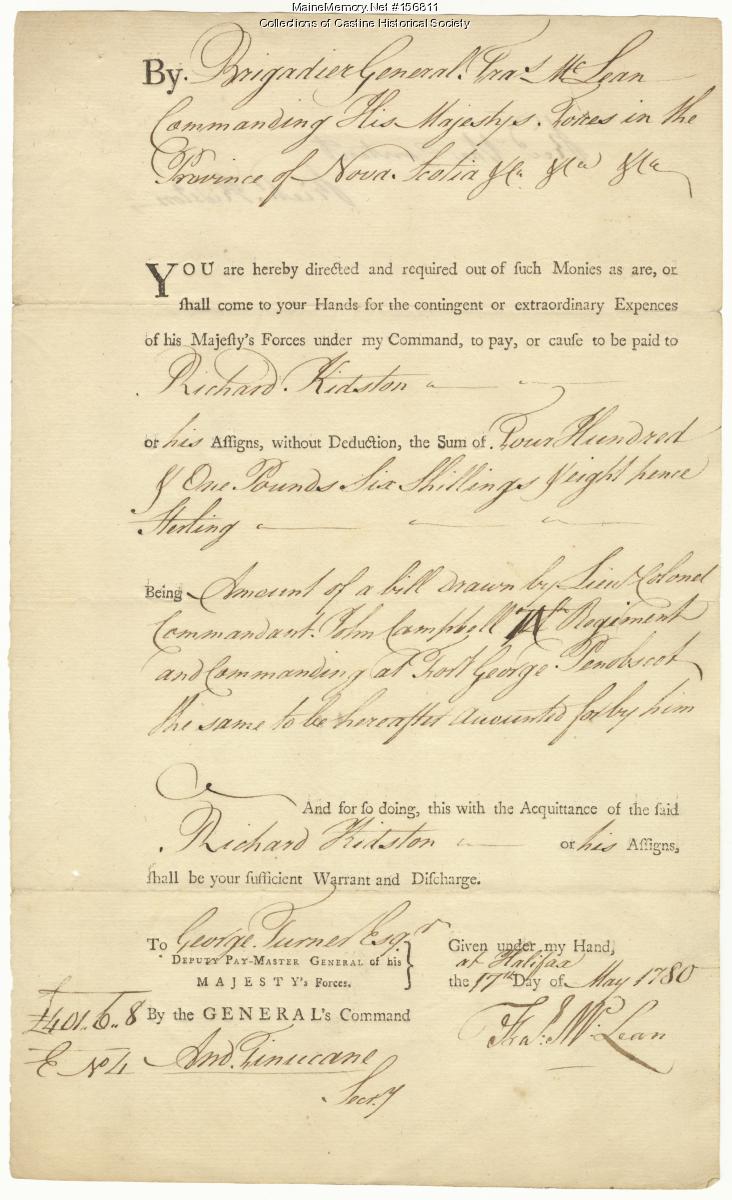 MaineMemory.Net #156811
Collections of Castine Historical Society
By. Brigadier General. Fras. McLean
Commanding His Majestys. Forces in the
Province of Nova. Scotia &ca &ca &ca
YOU are hereby directed and required out of such Monies as are, or
shall come to your Hands for the contingent or extraordinary Expences
of his Majesty's Forces under my Command, to pay, or cause to be paid to
Richard. Kidston
or his Assigns, without Deduction, the Sum of Four Hundred
& One Pounds Six Shillings & eight pence
Sterling
Being Amount of a bill drawn by Lieut Colonel
Commandant. John Campbell 74th Regiment
and Commanding at Fort George Penobscot
the same to be hereafter accounted for by him
And for so doing, this with the Acquittance of the said
Richard Kidston or his Assigns,
shall be your sufficient Warrant and Discharge.
To George. Turner Esqr
DEPUTY PAY-MASTER GENERAL of his
MAJESTY's Forces.
Given under my Hand,
at Halifax
the 17th Day of May 1780
£401..6..8 By the GENERAL's Command
Fras. McLean
E No 4 And. Finucane
Secry